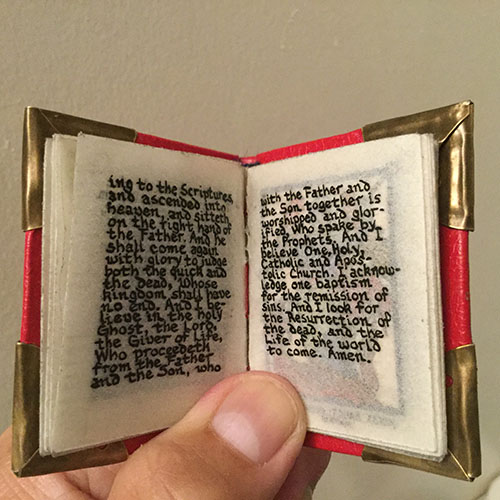 ing to the Scriptures
and ascended into
heaven, and sitteth
on the right hand of
the Father. And he
shall come again
with glory to judge
both the quick and
the dead, Whose
kingdom shall have
no end. And I be-
lieve in the holy
Ghost, the Lord,
the Giver of Life,
Who proceedeth
from the Father
and the Son, who
with the Father and
the Son together is
worshipped and glor-
ified, Who spake by
the Prophets, And I
believe One, holy,
Catholic and Apos-
tolic Church. I acknow-
ledge one baptism
for the remission of
sins. And I look for
the Resurrection of
the dead, and the
Life of the world
to come. Amen.